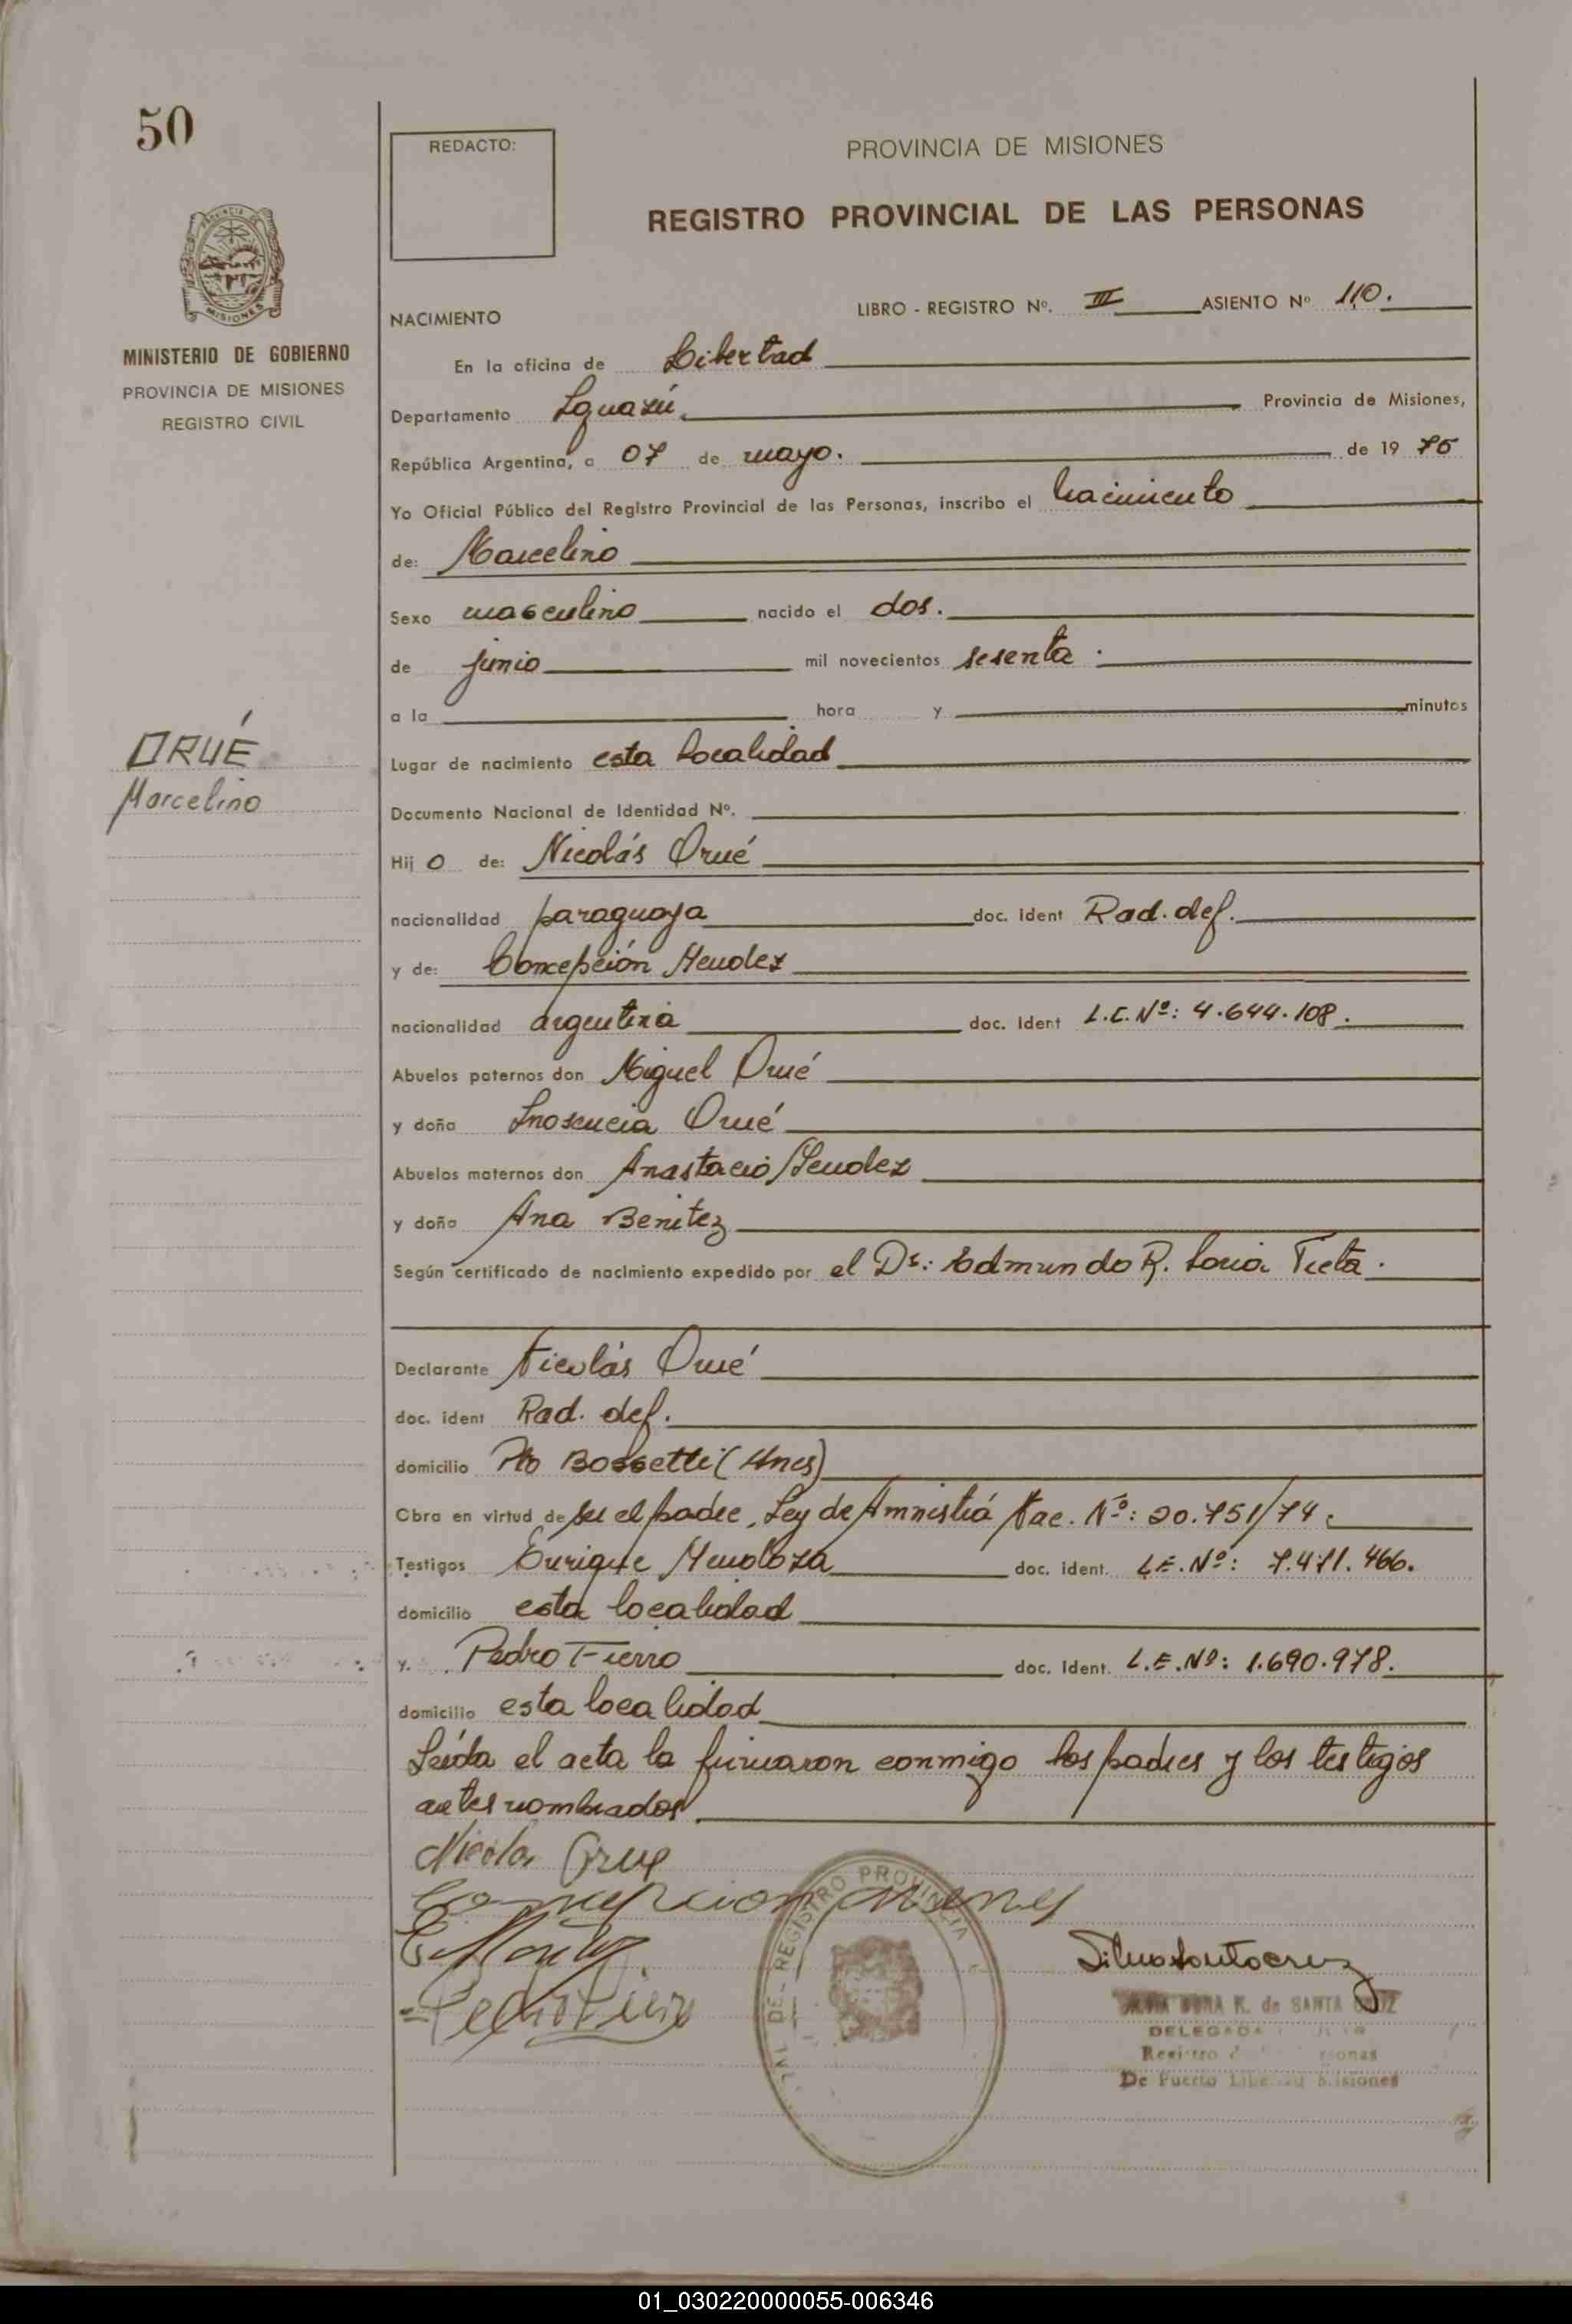 50
REDACTO:
PROVINCIA DE MISIONES
REGISTRO PROVINCIAL DE LAS PERSONAS
MISIONES
MINISTERIO DE GOBIERNO
PROVINCIA DE MISIONES
REGISTRO CIVIL
LIBRO - REGISTRO Nº. III ASIENTO Nº 110.
NACIMIENTO
En la oficina de Libertad
Departamento Iguazú. Provincia de Misiones,
República Argentina, a 07 de mayo. de 19 75
Yo Oficial Público del Registro Provincial de las Personas, inscribo el nacimiento
de: Marcelino
Sexo masculino nacido el dos.
de junio mil novecientos sesenta.
a la hora y minutos
ORUÉ
Marcelino
Lugar de nacimiento esta localidad
Documento Nacional de Identidad Nº.
Hij o de: Nicolás Orué
nacionalidad paraguaya doc. ident Rad. def.
y de: Concepción Mendez
nacionalidad argentina doc. ident L.C.Nº: 4.644.108.
Abuelos paternos don Miguel Orué
y doña Inosencia Orué
Abuelos maternos don Anastacio Mendez
y doña Ana Benitez
Según certificado de nacimiento expedido por el Dr.: Edmundo R. Soria
Declarante Nicolás Orué
doc. ident Rad. def.
domicilio Pto Bossetti (Mnes)
Obra en virtud de ser el padre, Ley de Amnistiá Nac. Nº: 20.751/74.
Testigos Enrique Mendoza doc. ident. L.E.Nº: 7.471.466.
domicilio esta localidad
y. Pedro Fierro doc. Ident. L.E.Nº: 1.690.978.
domicilio esta localidad
Leída el acta la firmaron conmigo los padres y los testigos
antes nombrados
Nicolas Orue
Concepcion
Pedro Fierro
REGISTRO PROVINCIAL DE
K. de SANTA CRUZ
DELEGADA
Registro
De Puerto Libertad Misiones
01_030220000055-006346